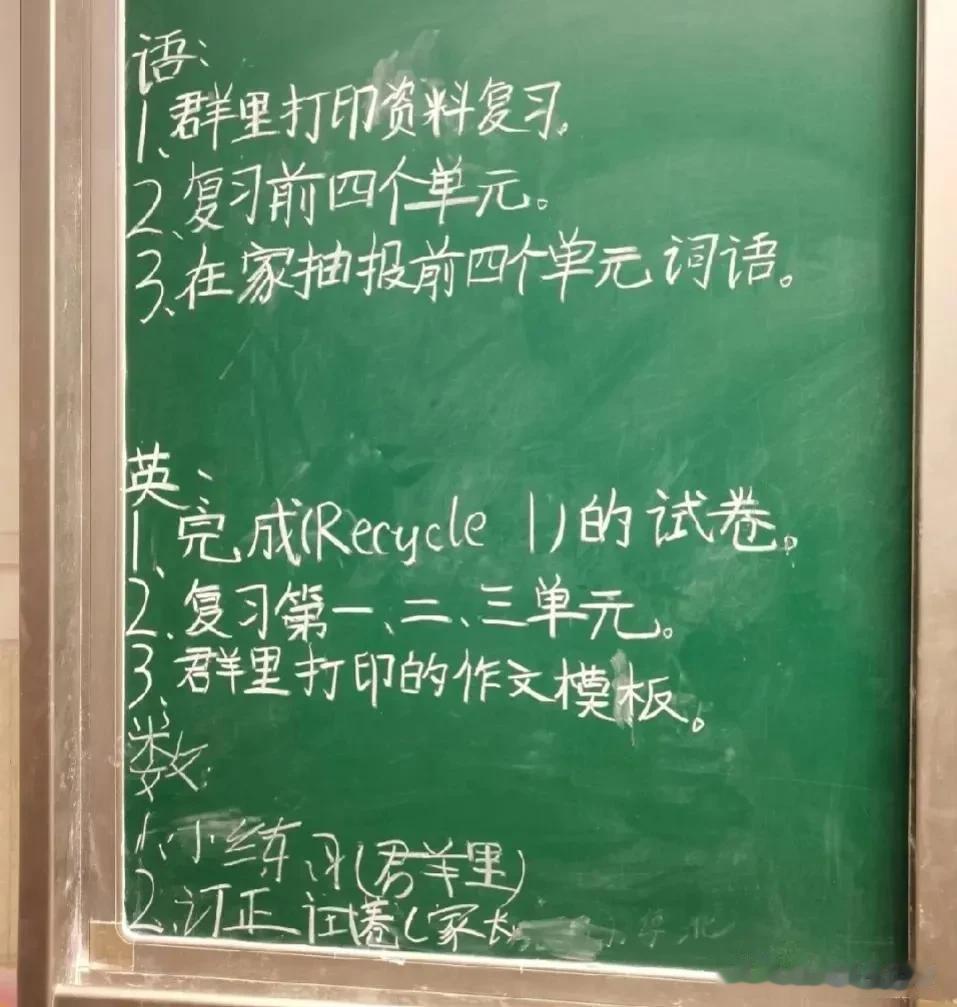 语：
1、群里打印资料复习。
2、复习前四个单元。
3、在家抽报前四个单元词语。
英、
1、完成(Recycle 1)的试卷。
2、复习第一、二、三单元。
3、群里打印的作文模板。
数：
1、小练习(群里)
2、订正试卷(家长